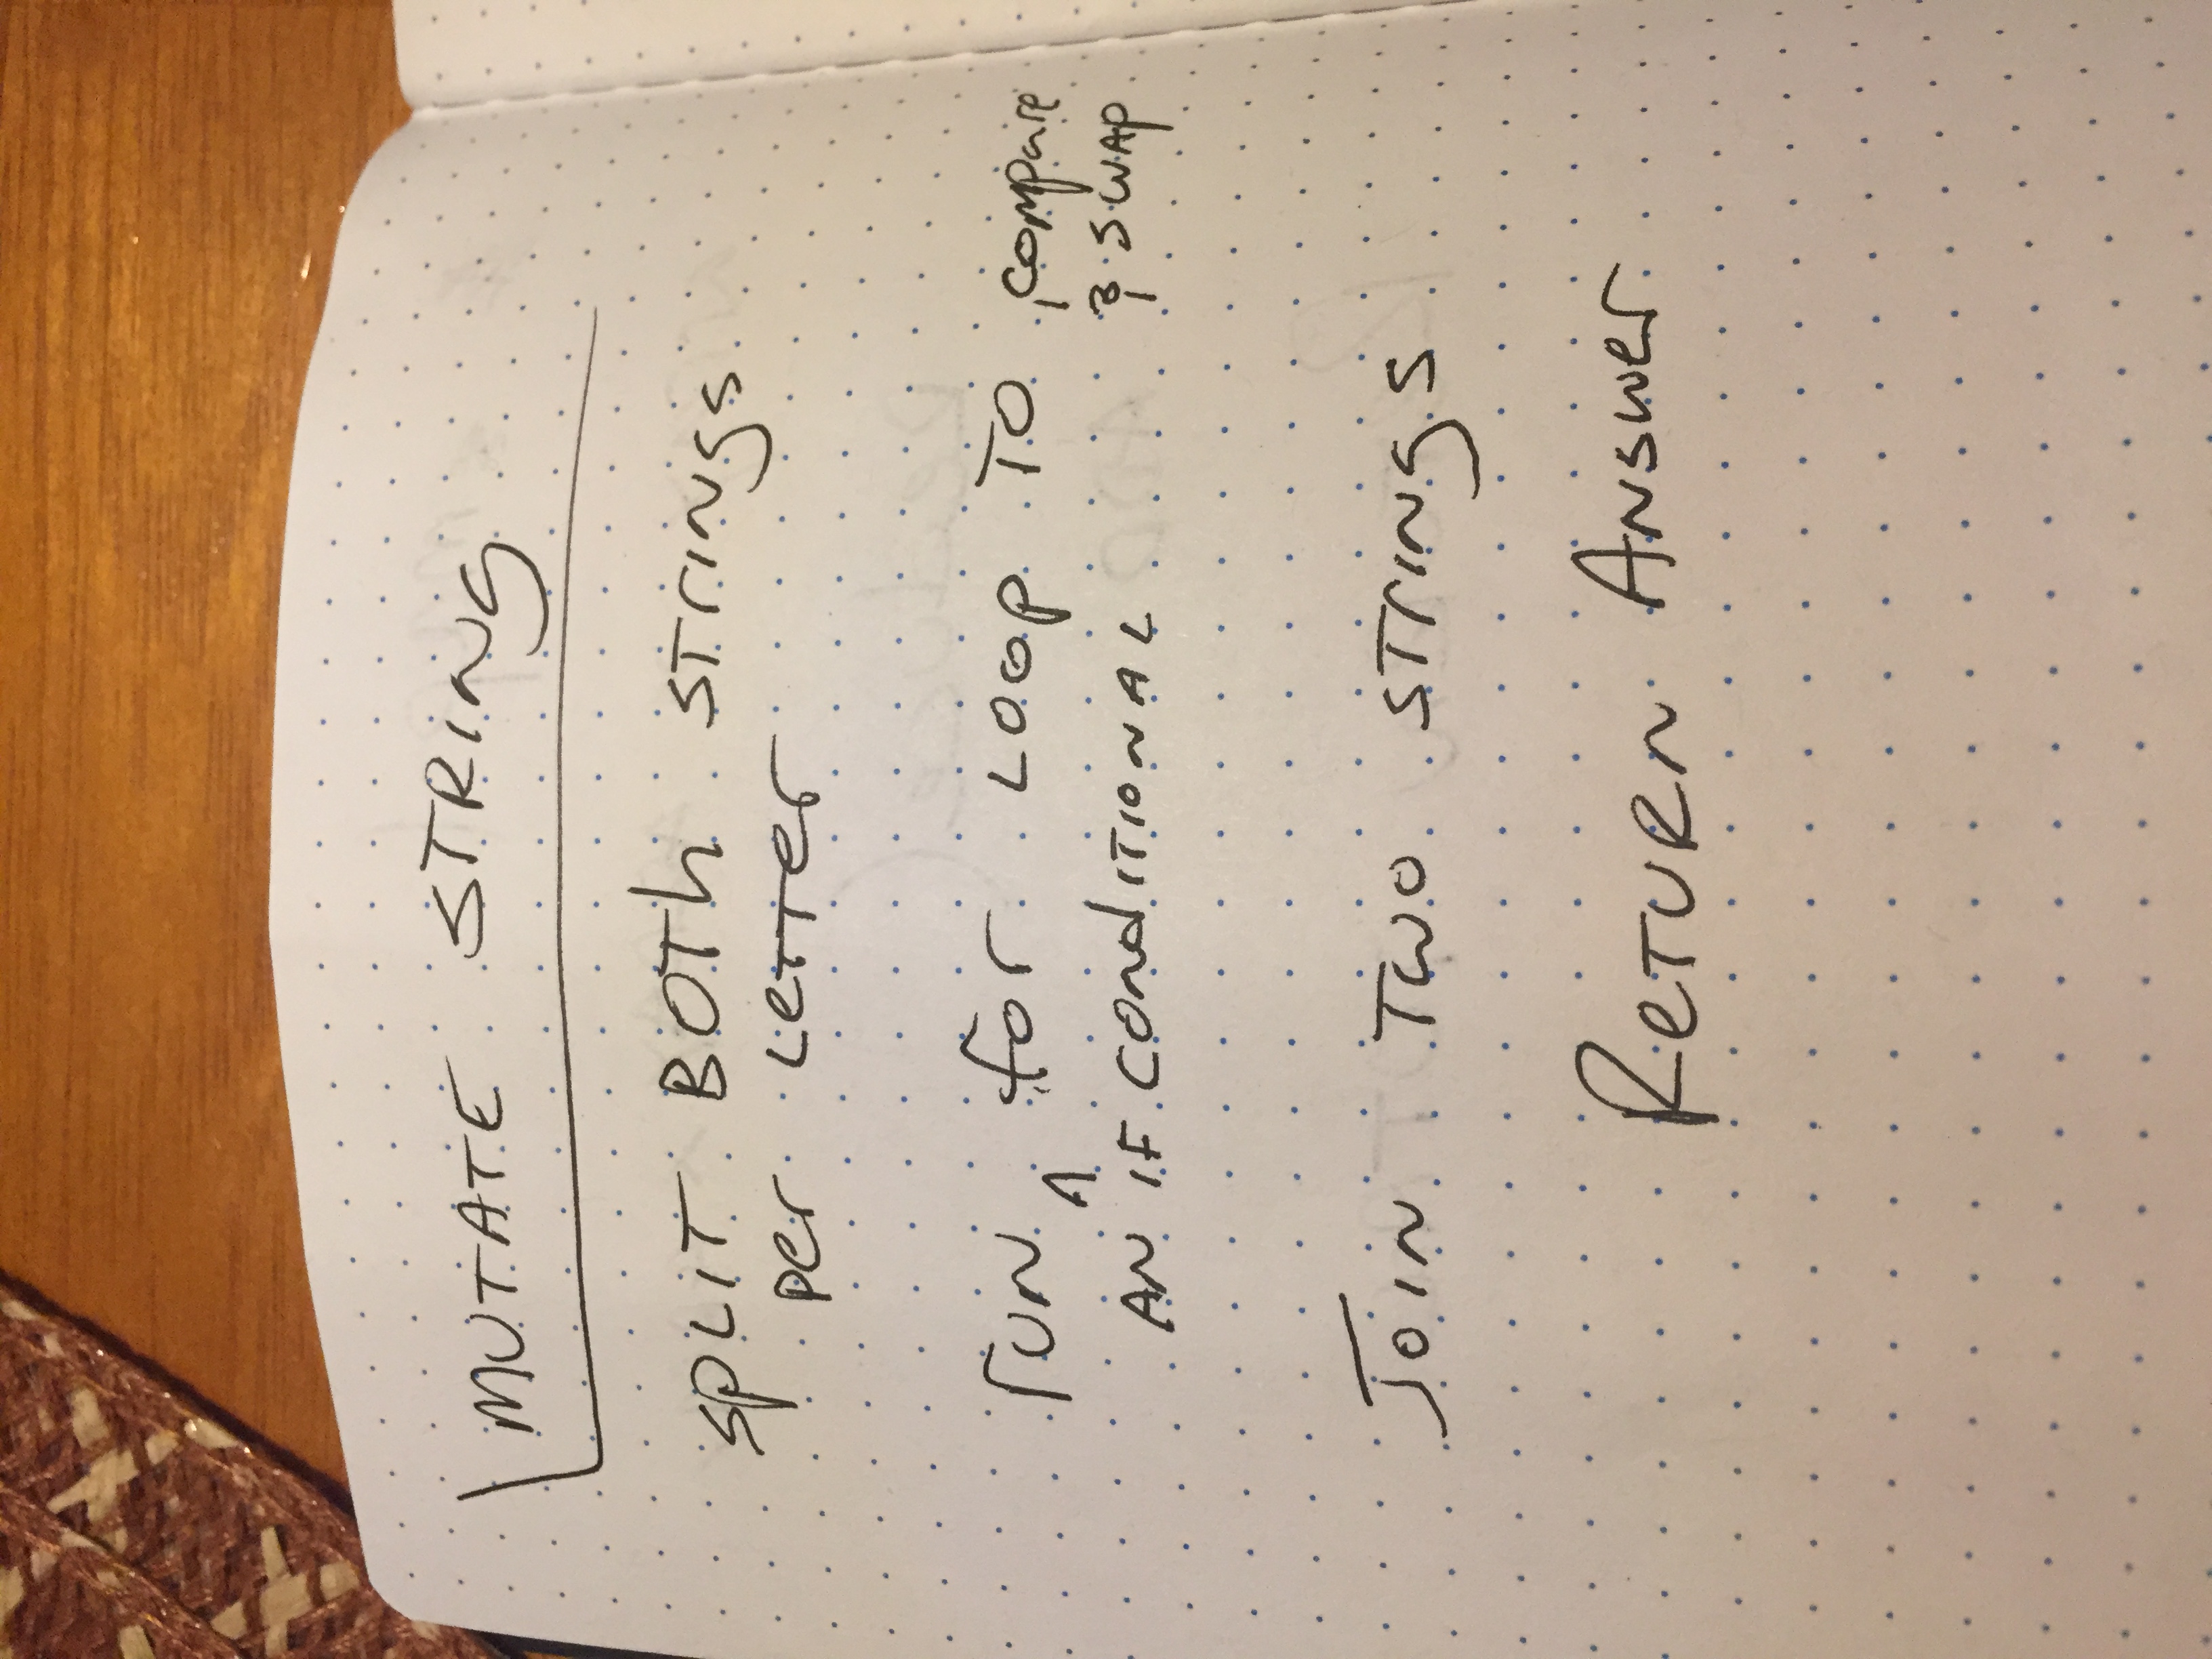 MUTATE STRING
SPLIT BOTh STrINgS
per LeTTer
rUN ^ for LOOP TO compare
AN IF CONdITIONAL & SWAP
JOIN TWO STrINgS
ReTURN ANSwer